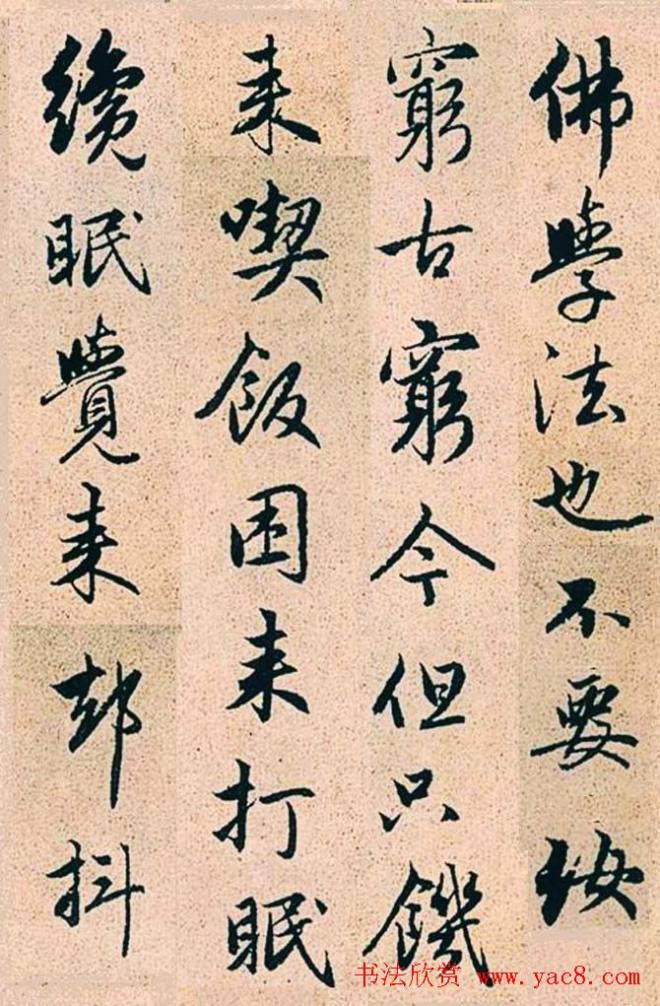 佛學法也不要汝
窮古窮今但只饑
来喫飯困来打眠
纔眠覺来却抖
书法欣赏 www.yac8.com